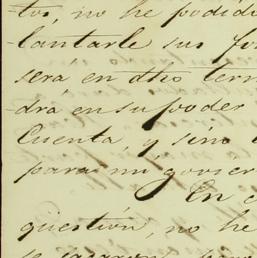 tos, no he podid
lantarle sus fo
será en dho ter
drá en su poder
Cuenta, y sino
para mi govier
En
qüestión, no he